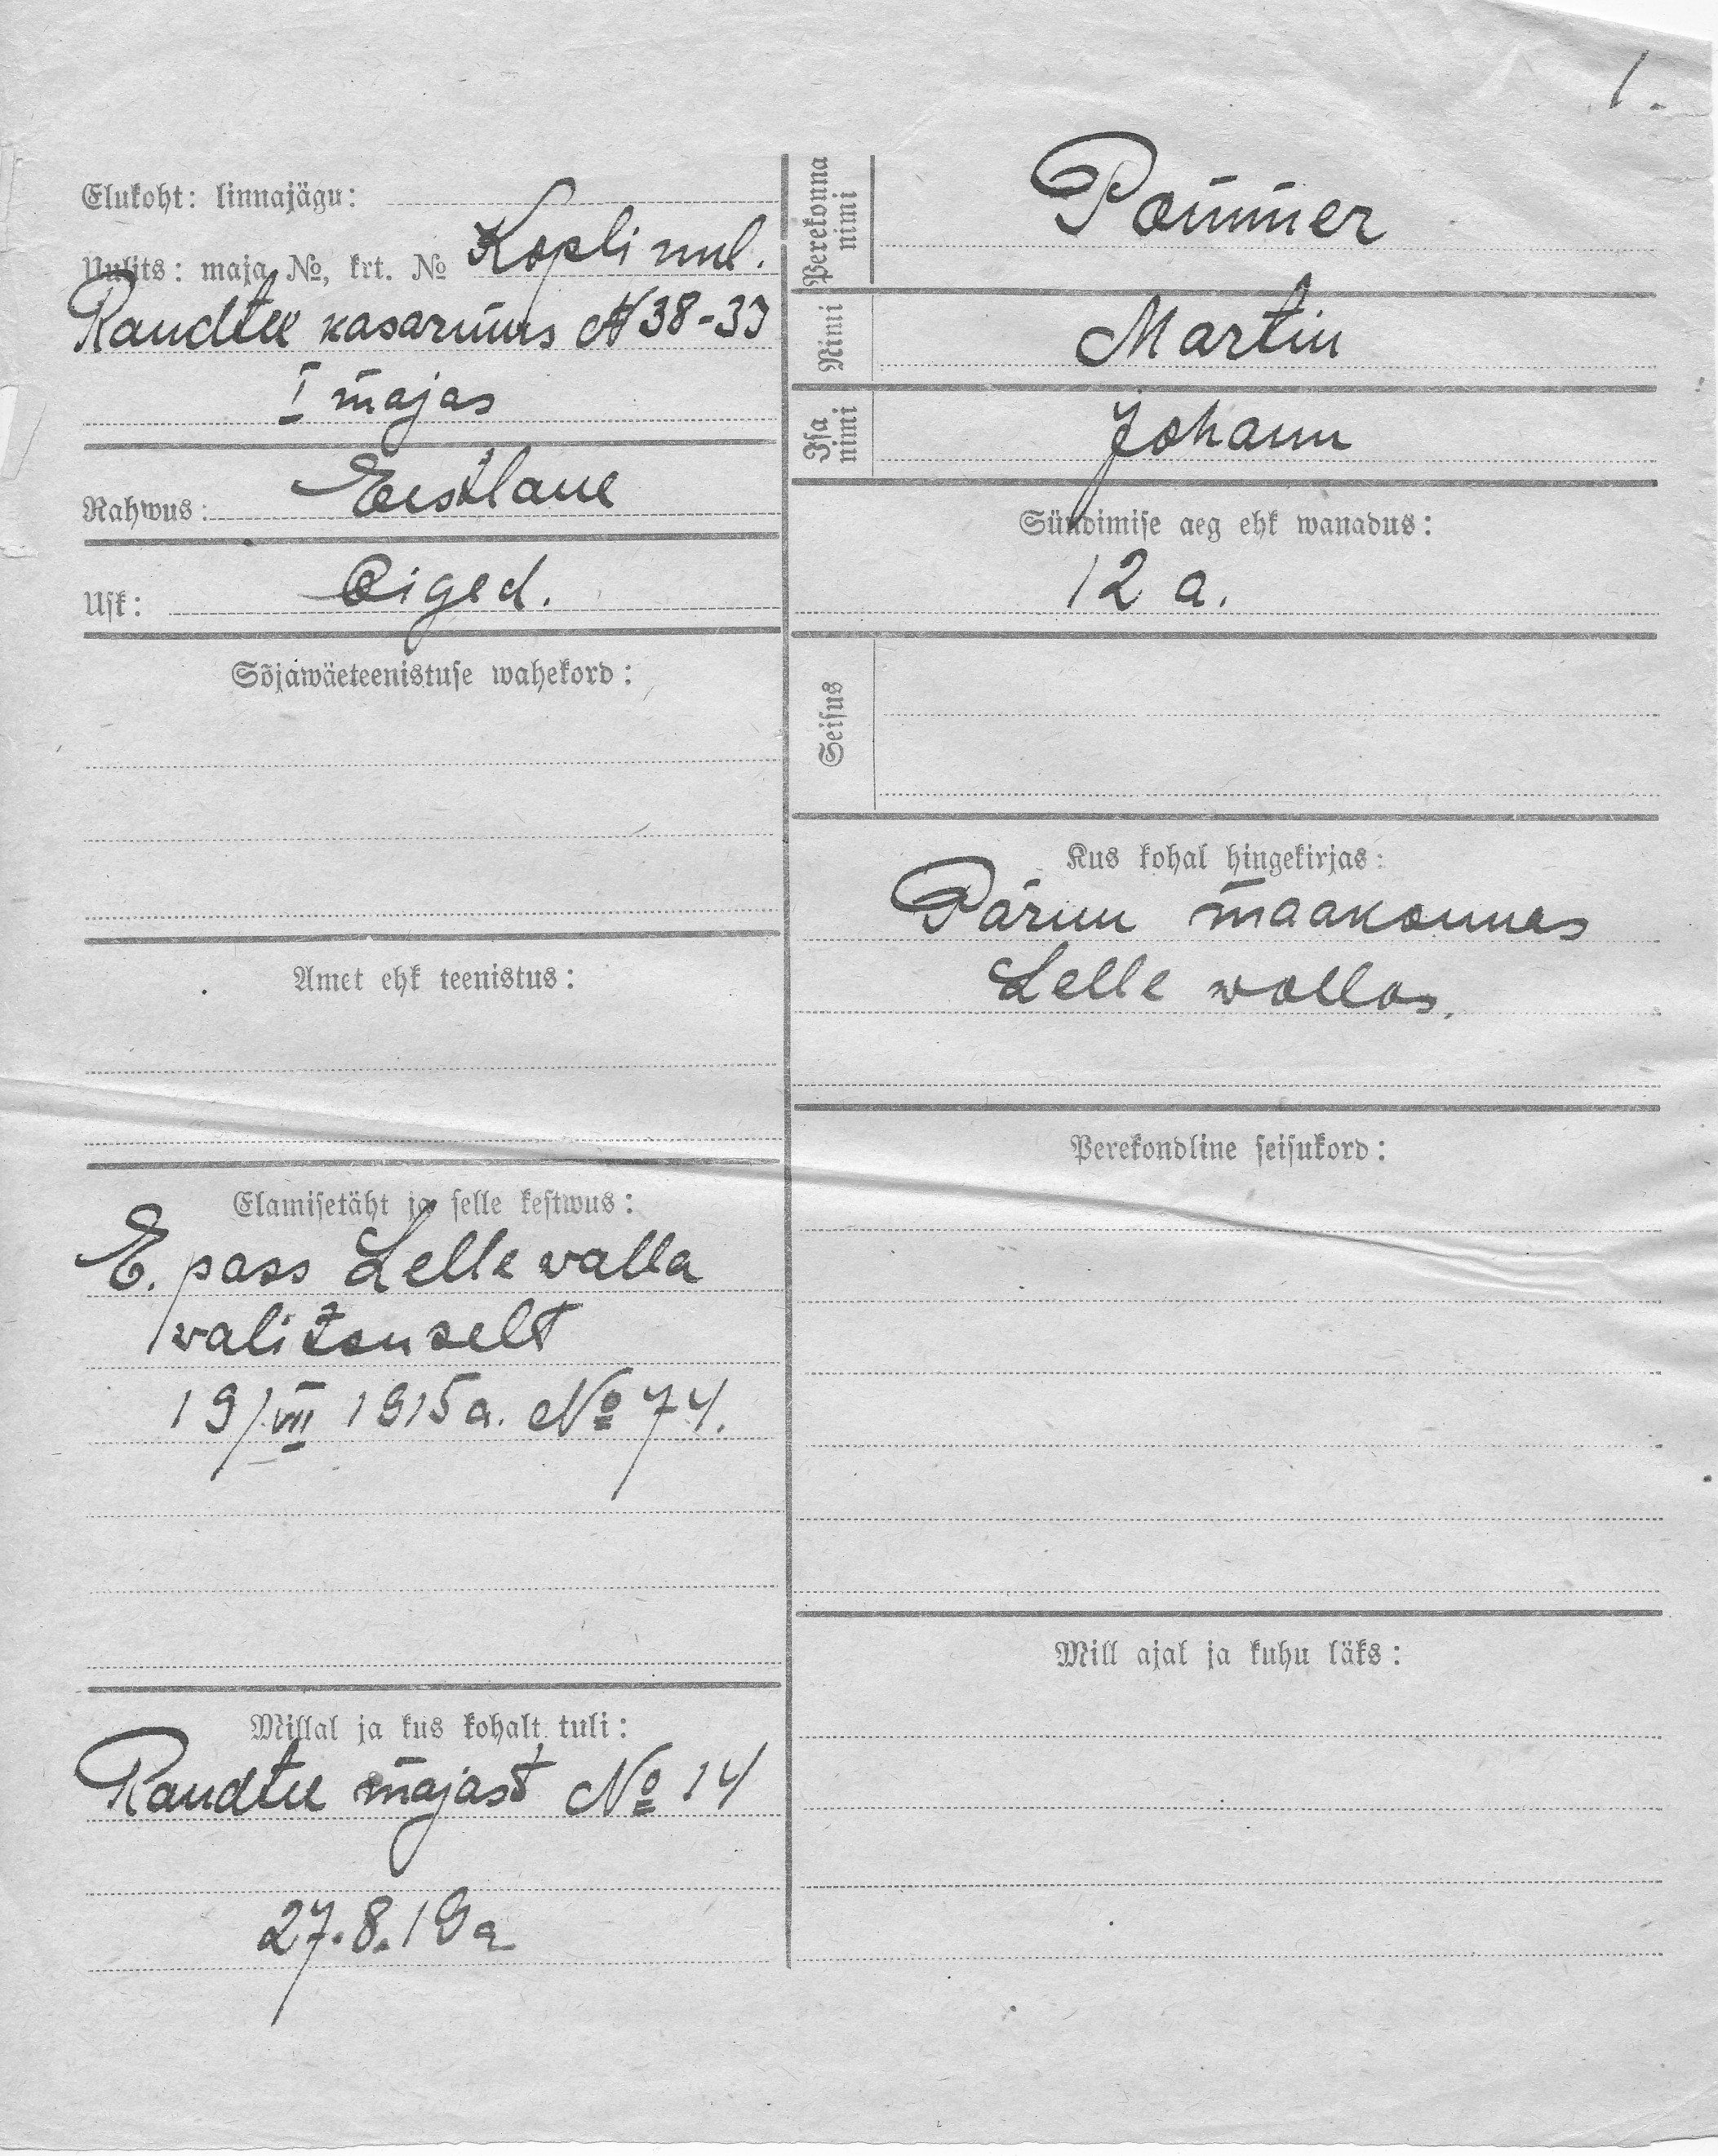 1.
Elukoht: linnajägu:
Uulits: maja №, krt. № Kopli uul.
Raudtee kasarmus № 38-33
I majas
Rahwus: Eestlane
Usk: Õiged.
Sõjawäeteenistuse wahekord:
Amet ehk teenistus:
Elamisetäht ja selle kestwus:
E. pass Lelle valla
valitsuselt
19/VII 1915 a. № 74.
Millal ja kus kohalt tuli:
Raudtee majast № 14
27.8.19 a
Perekonna nimi Pommer
Nimi Martin
Isa nimi Johann
Sündimise aeg ehk wanadus:
12 a.
Seisus
Kus kohal hingekirjas:
Pärnu maakonnas
Lelle wallas.
Perekondline seisukord:
Mill ajal ja kuhu läks: